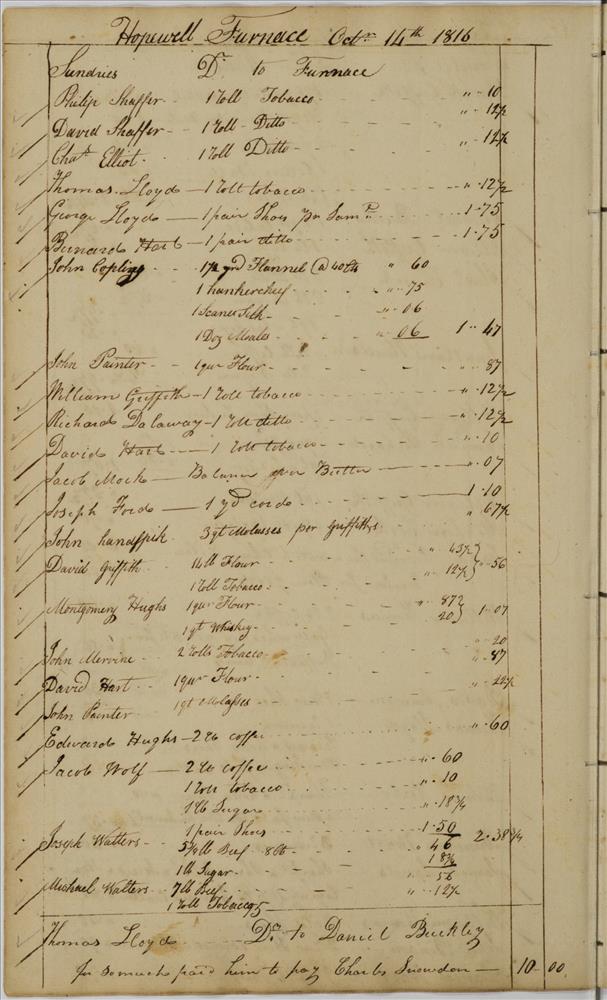 Hopewell Furnace Octr. 14th 1816
Sundries Dr. to Furnace
Philip Shaffer - 1 Roll Tobacco - " 10
David Shaffer - 1 Roll Ditto - " 12½
Chas. Elliot - 1 Roll Ditto - " 12½
Thomas Lloyd - 1 Roll tobacco - " 12½
George Lloyd - 1 pair Shoes pr Saml. P. 1.75
Barnard Hart - 1 pair ditto 1.75
John Copling - 1½ yrd Flannel @ 40 cts " 60
1 hankercheif - " 75
1 Scanes Silk - " 06
1 Doz Moales - " 06 1 " 47
John Painter - 1 qur Flour - " 87
William Griffith - 1 Roll tobacco - " 12½
Richard Dalaway - 1 Roll ditto - " 12½
David Hart - 1 Roll tobacco - " 10
Jacob Mock - Balance over Butter - " 07
Joseph Ford - 1 yd cord 1.10
John handspik 3 qt Molasses per Griffiths " 67½
David Griffith 14 lb Flour " 43½ } " 56
1 Roll Tobacco " 12½
Montgomery Hughs 1 qur Flour - " 87 } 1.07
1 qt Whiskey - 20
John Mervine - 2 Rolls Tobacco " 20
David Hart - 1 qur Flour - " 87
John Painter 1 qt Molasses " 22½
Edward Hughs - 2 lb coffee " 60
Jacob Wolf - 2 lb coffee " 60
1 Roll tobacco " 10
1 lb Sugar " 18¾
1 pair Shoes 1.50 2.38¾
Joseph Walters - 5¾ lb Beef 8 ct " 46
1 lb Sugar 18¾
Michael Walters - 7 lb Beef " 56
1 Roll Tobacco " 12½
Thomas Lloyd Dr. to Daniel Buckley
for so much paid him to pay Charles Snowdon - 10 00